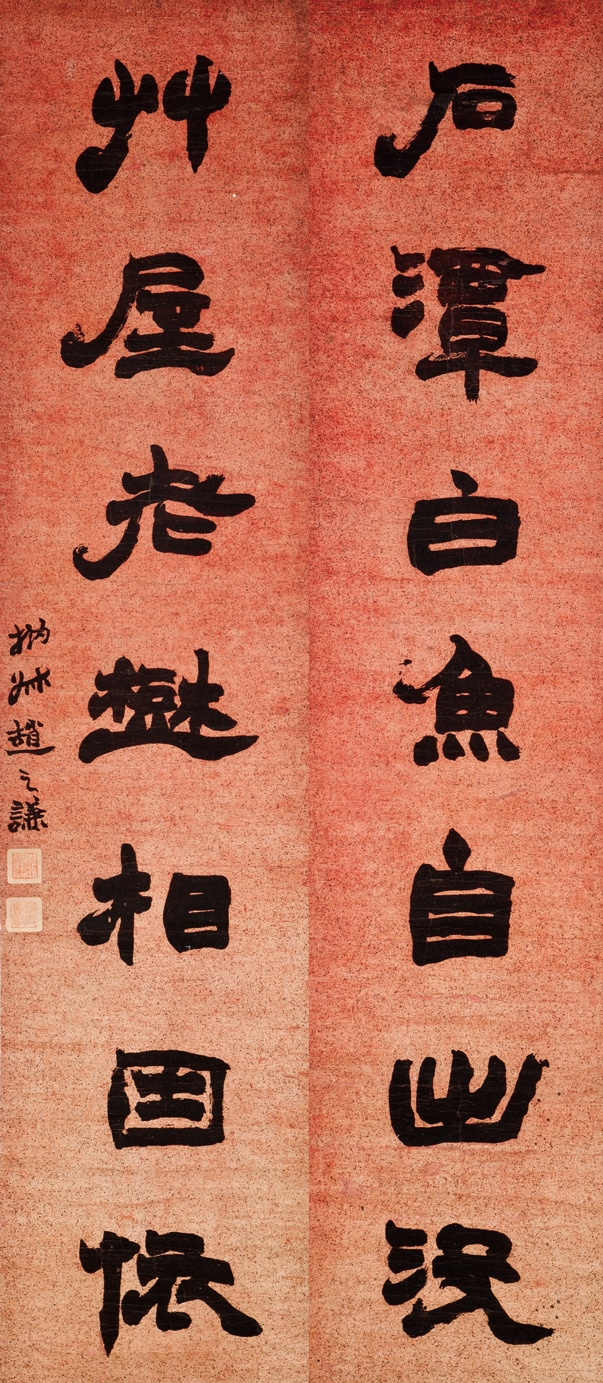 石潭白魚自出没
艸屋老相因依
撝叔趙之謙